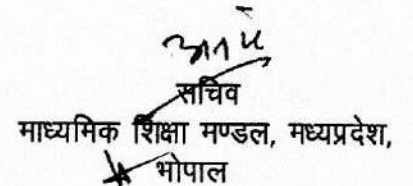 सचिव
माध्यमिक शिक्षा मण्डल, मध्यप्रदेश,
भोपाल